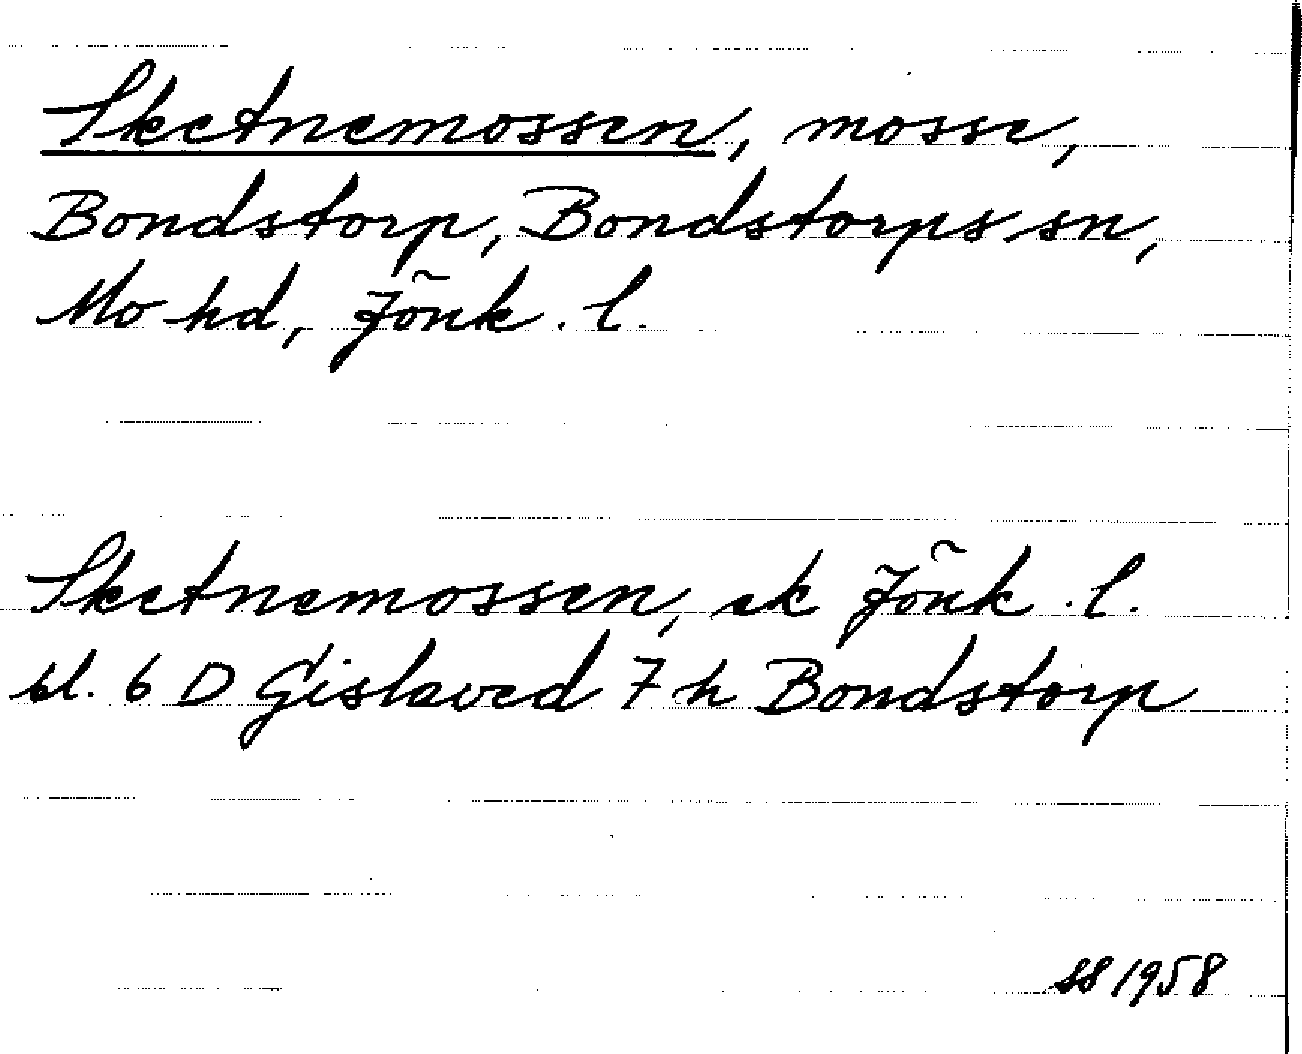 Sketnemossen, mosse,
Bondstorp, Bondstorps sn,
Mo hd, Jönk. l.
Sketnemossen, ek Jönk. l.
bl. 6 D Gislaved 7 h Bondstorp
SS 1958